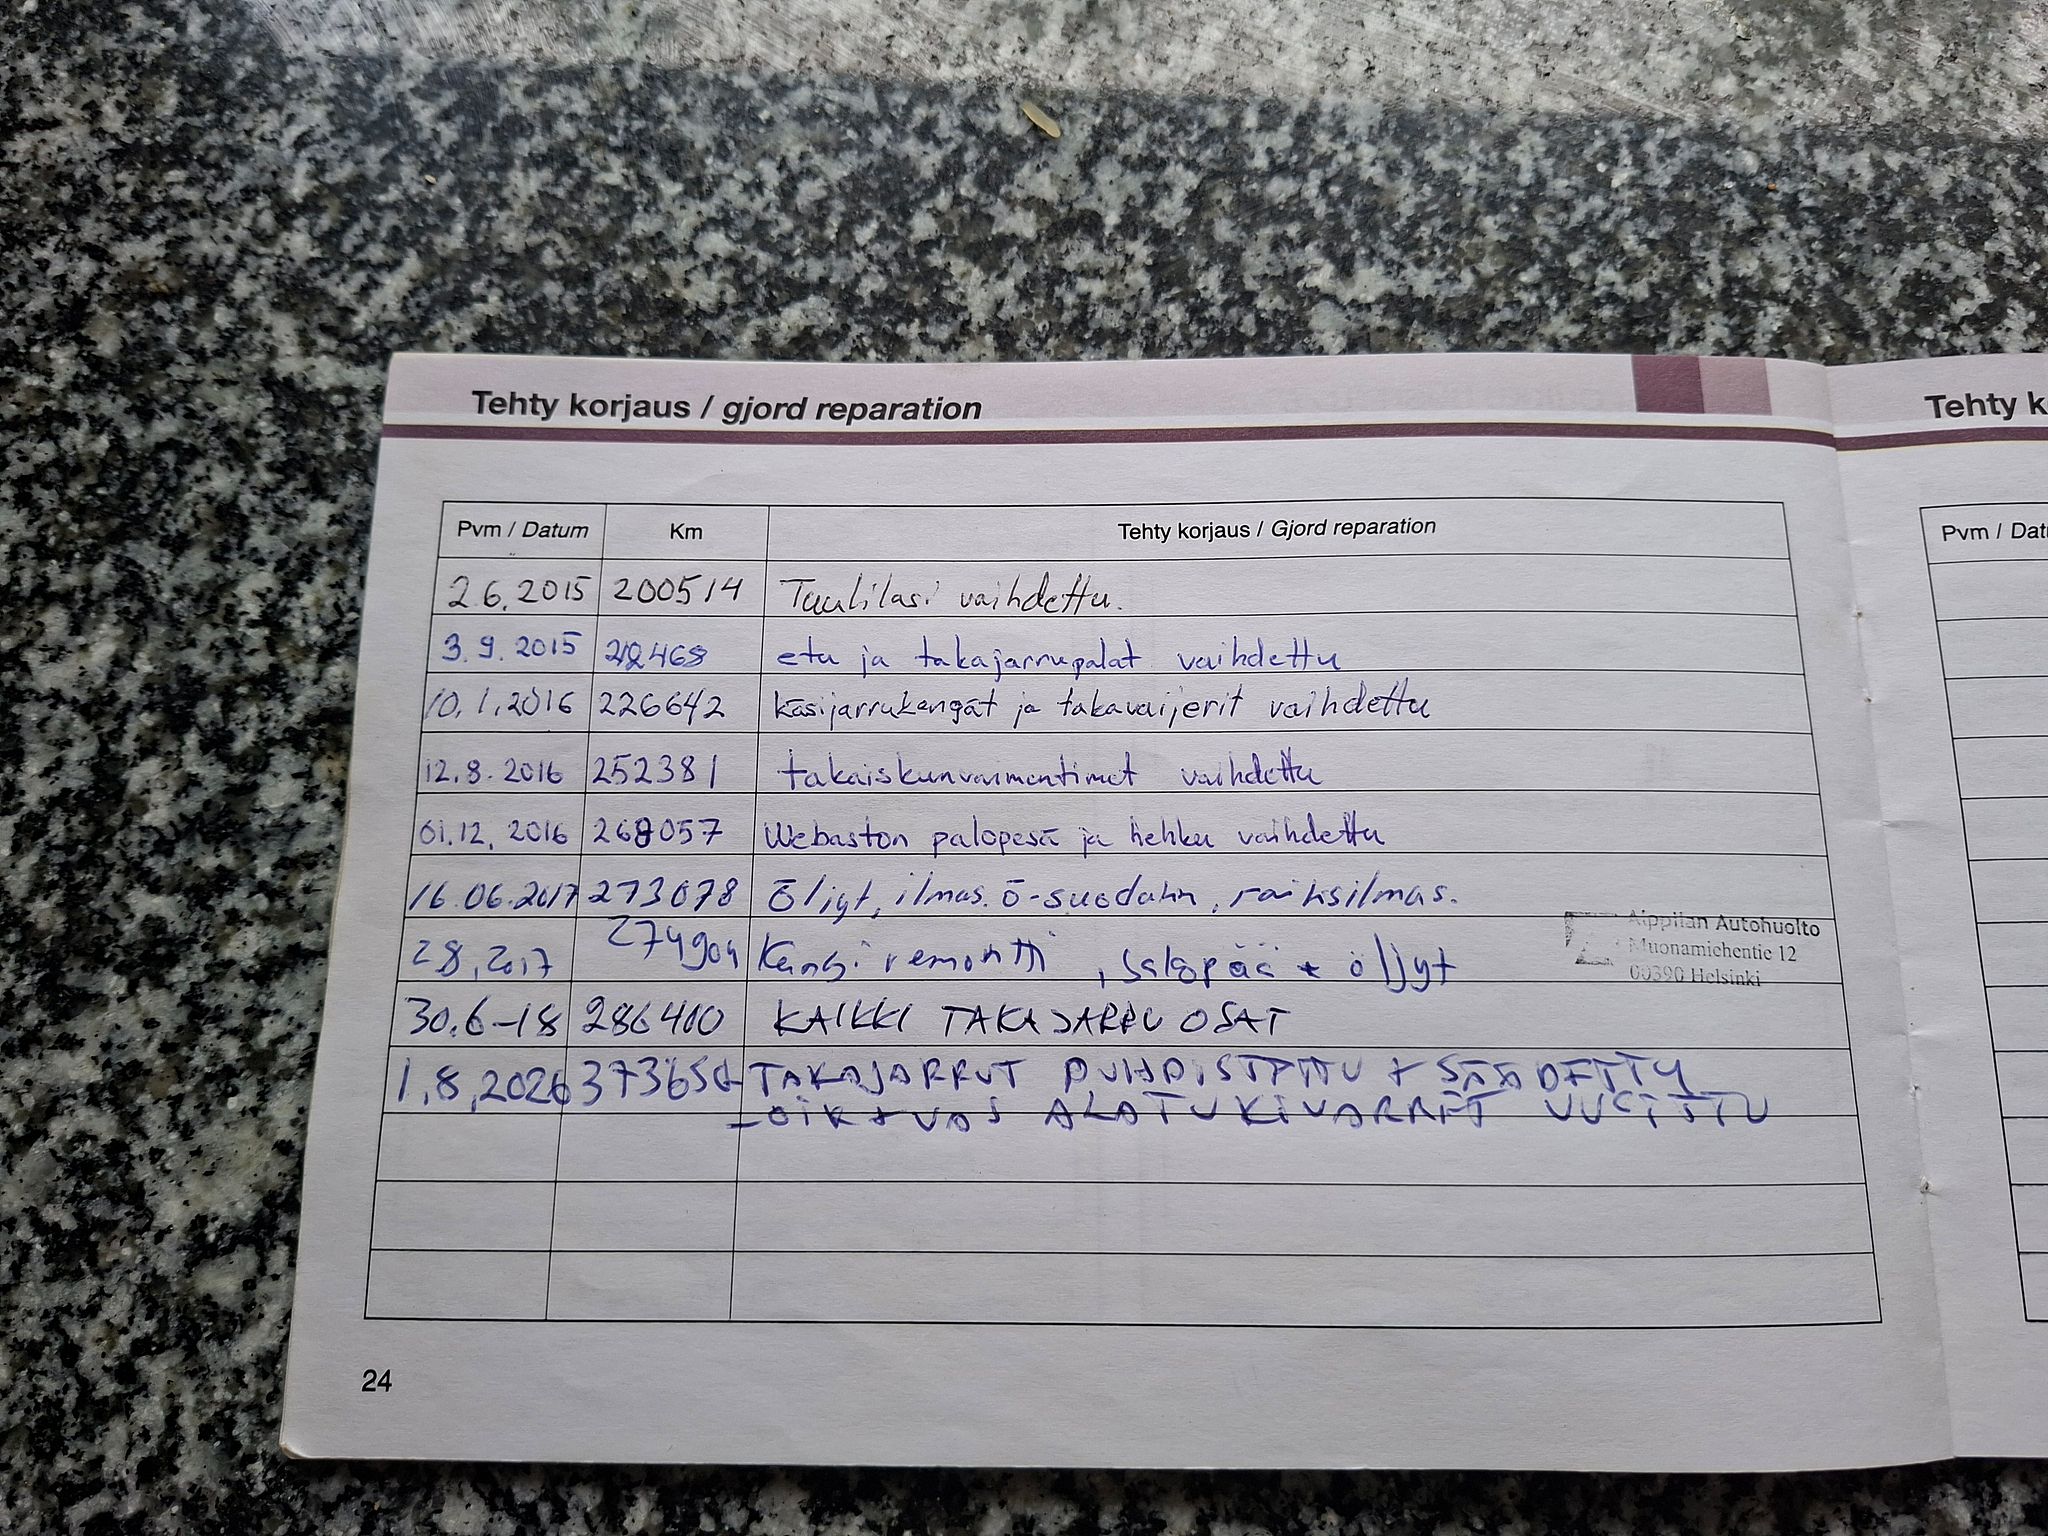 Tehty korjaus / gjord reparation
Tehty k
Pvm / Datum Km Tehty korjaus / Gjord reparation
Pvm / Dat
2.6.2015 200514 Tuulilasi vaihdettu.
3.9.2015 212468 etu ja takajarrupalat vaihdettu
10.1.2016 226642 käsijarrukengät ja takavaijerit vaihdettu
12.8.2016 252381 takaiskunvaimentimet vaihdettu
01.12.2016 268057 Webaston palopesä ja hehku vaihdettu
16.06.2017 273078 Öljyt, ilmas. ö-suodatin, raitisilmas.
2.8.2017 274904 Kansiremontti, jakopää + öljyt
Aippilan Autohuolto
Muonamiehentie 12
00390 Helsinki
30.6-18 286400 KAIKKI TAKAJARRU OSAT
1.8.2020 TAKAJARRUT PUHDISTETTU + SÄÄDETTY
- OIKEA ALATUKIVARRET UUSITTU
24